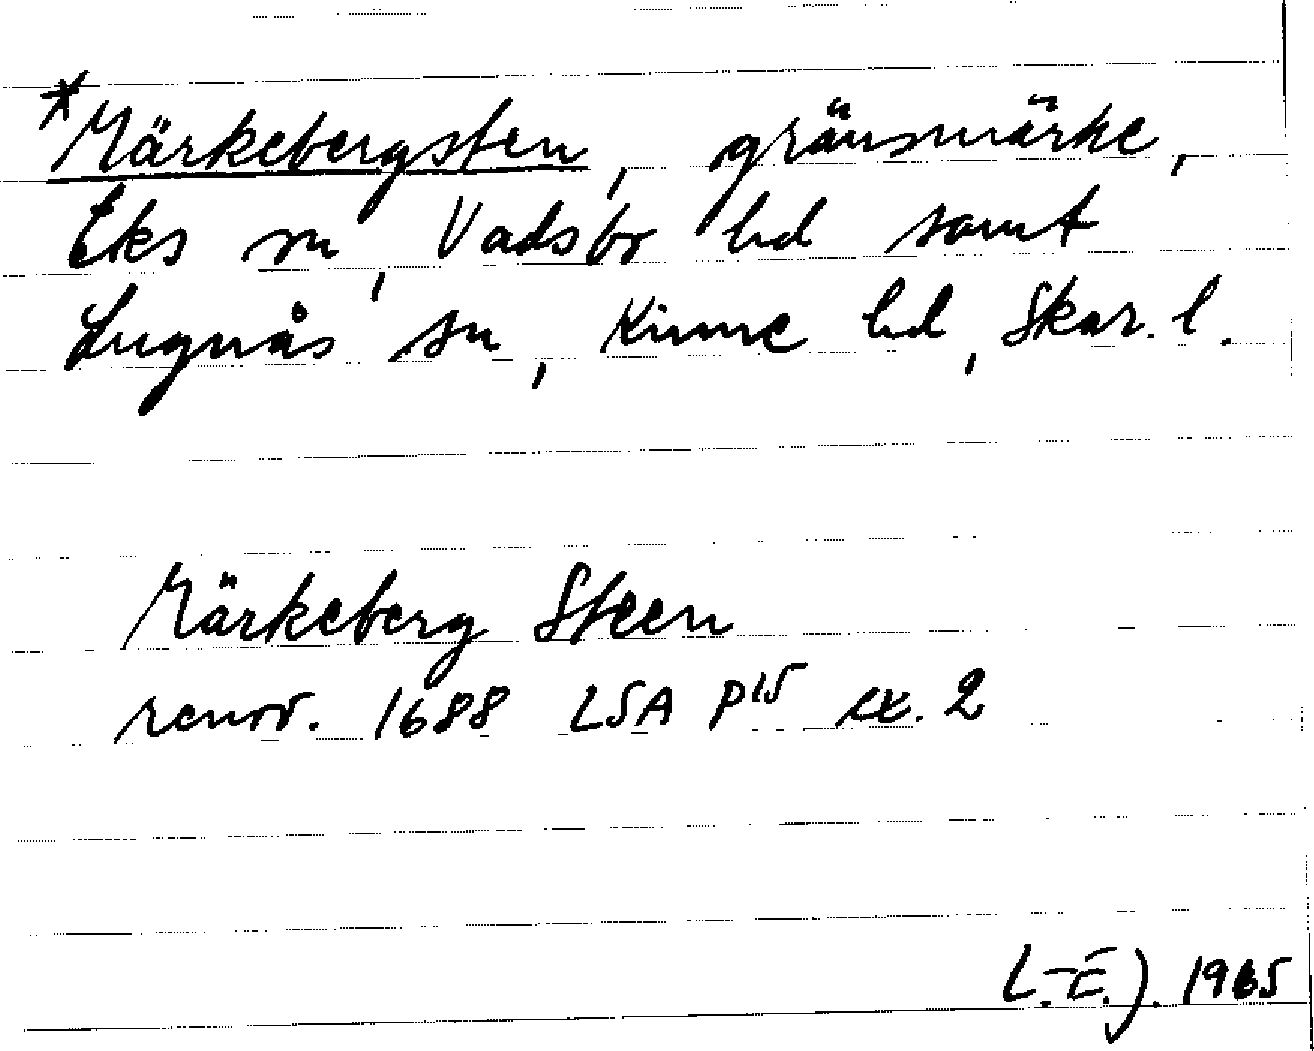 *Märkebergsten, gränsmärke,
Eks sn, Vadsbo hd samt
Lugnås sn, Kinne hd, Skar. l.
Märkeberg Steen
renov. 1688 LSA P15 ex. 2
L.-E. J. 1965